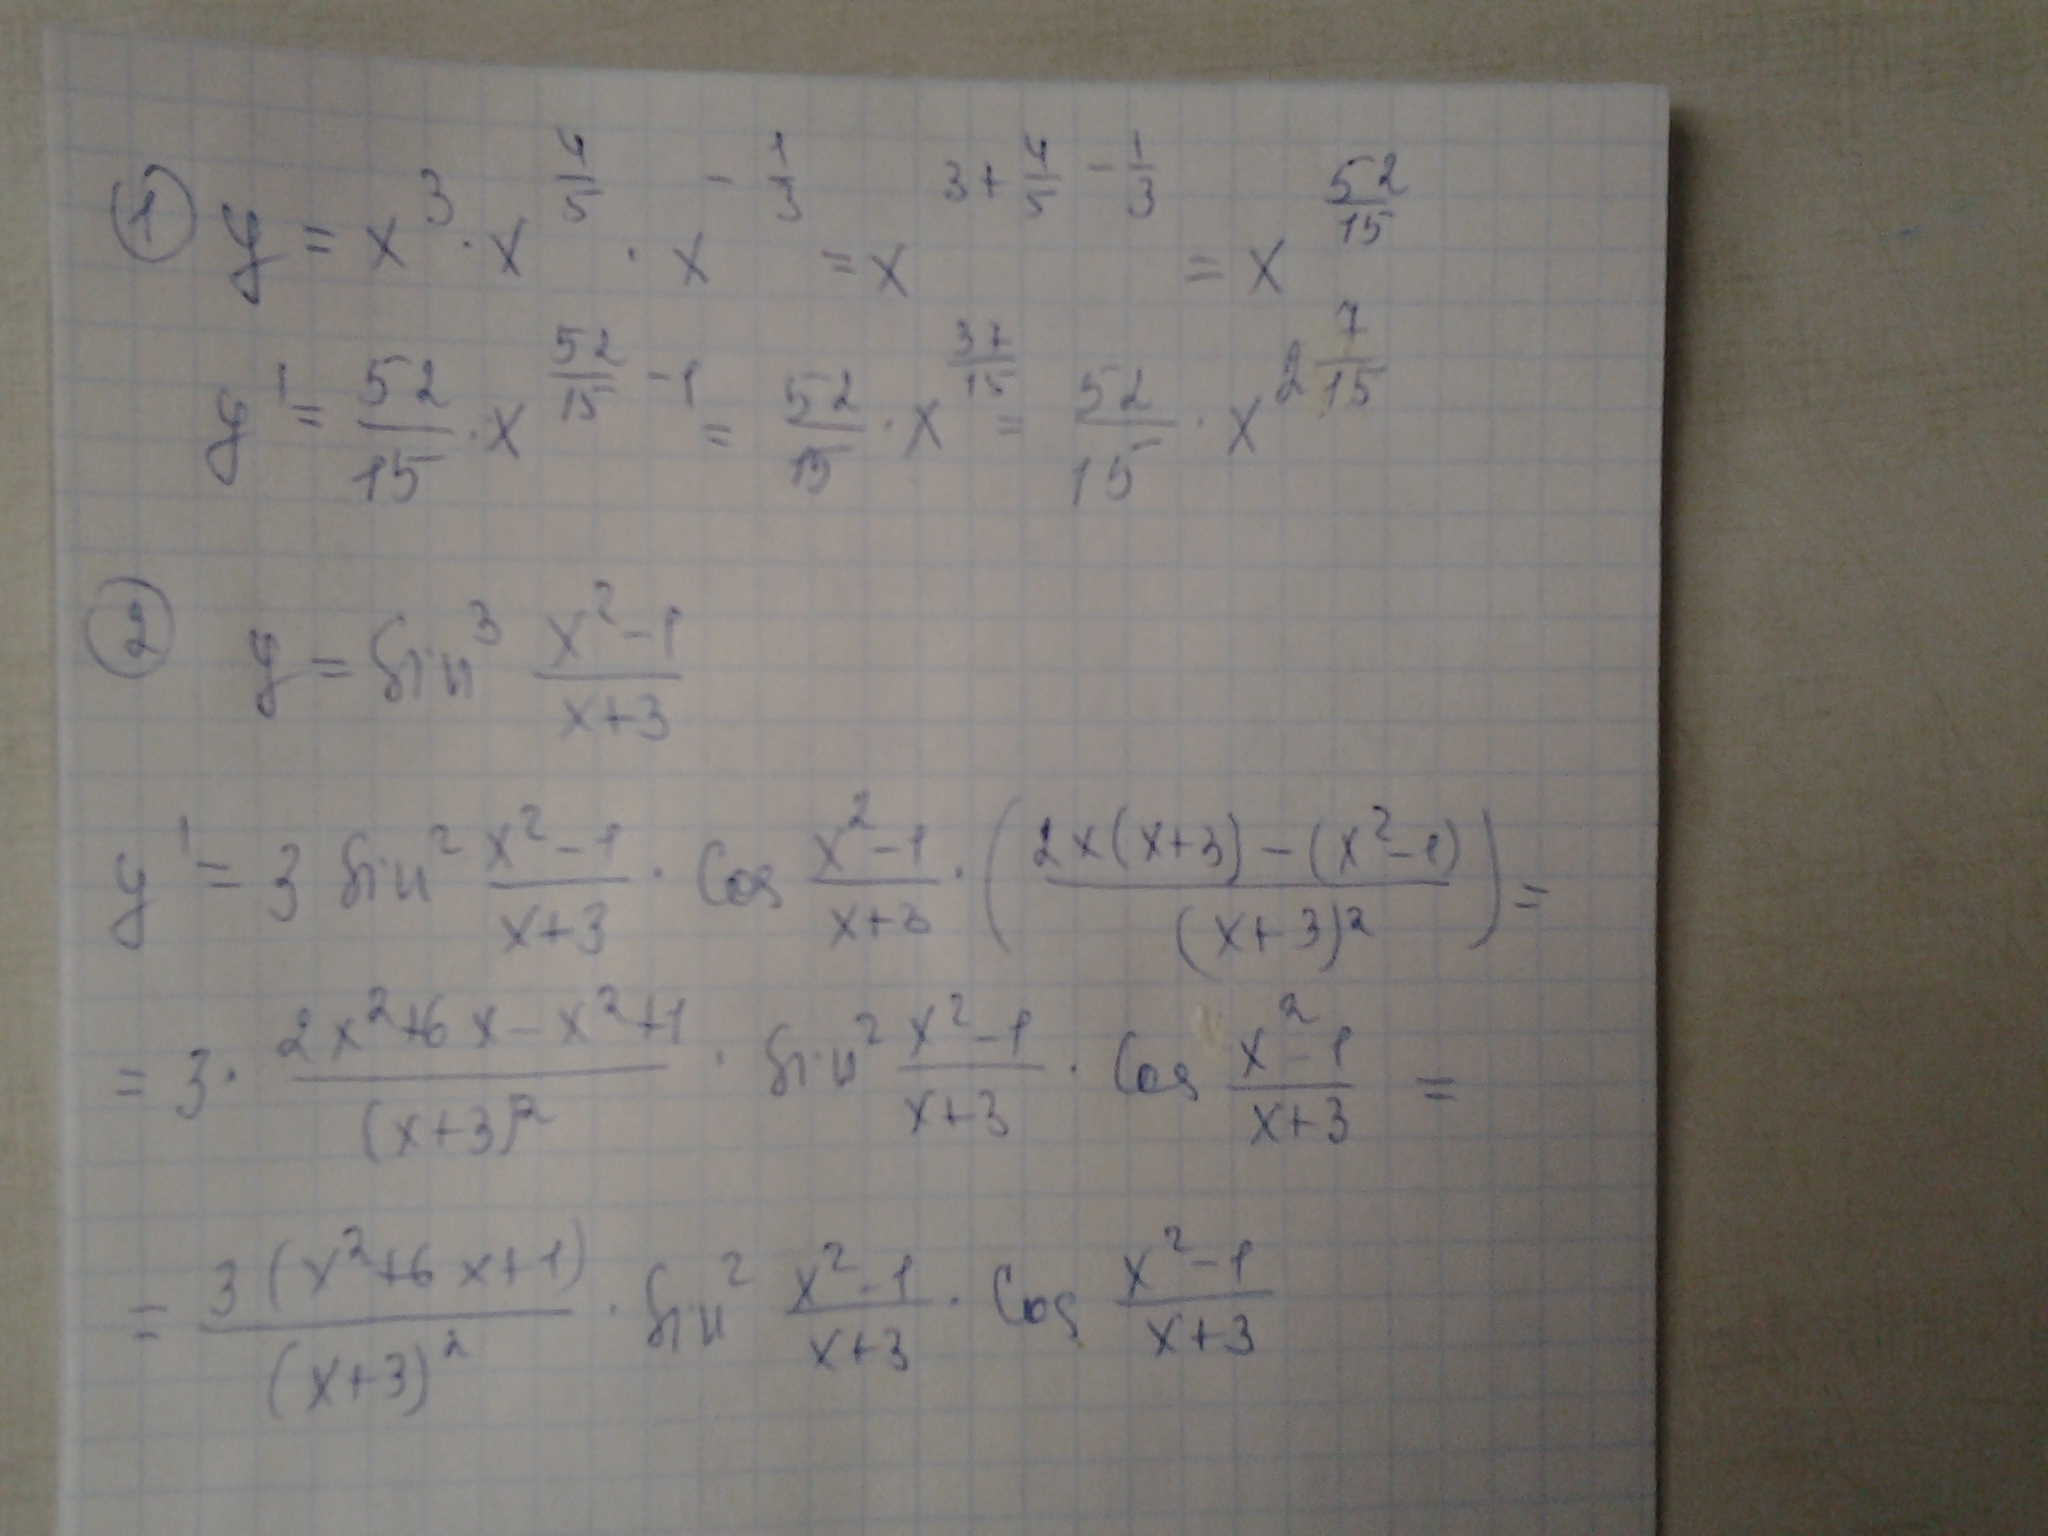 ① y = x³ · x^(4/5) · x^(-1/3) = x^(3+4/5-1/3) = x^(52/15)
y' = 52/15 · x^(52/15 - 1) = 52/15 · x^(37/15) = 52/15 · x^(2 7/15)
② y = sin³ (x²-1)/(x+3)
y' = 3 sin² (x²-1)/(x+3) · cos (x²-1)/(x+3) · ((2x(x+3)-(x²-1))/(x+3)²) =
= 3 · (2x²+6x-x²+1)/(x+3)² · sin² (x²-1)/(x+3) · cos (x²-1)/(x+3) =
= 3(x²+6x+1)/(x+3)² · sin² (x²-1)/(x+3) · cos (x²-1)/(x+3)